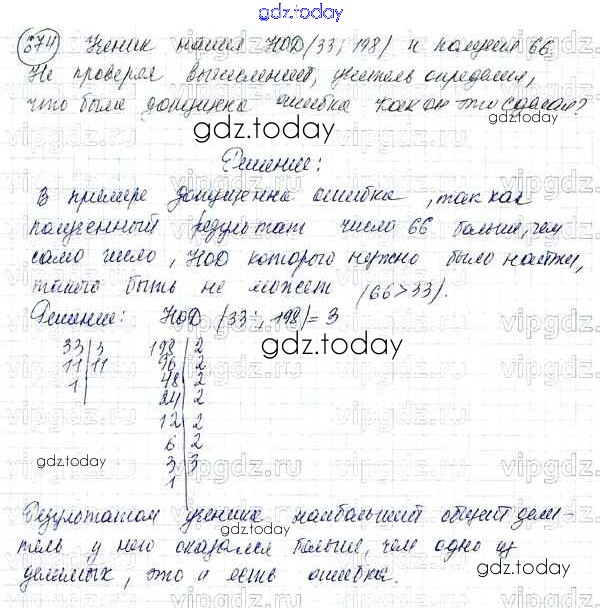 gdz.today
674 Ученик нашел НОД(33; 198) и получил 66.
Не проверяя вычислений, учитель определил,
что была допущена ошибка как он это сделал?
gdz.today
Решение:
В примере допущенна ошибка, так как
полученный результат число 66 больше, чем
само число, НОД которого нужно было найти,
такого быть не может (66>33).
Решение: НОД (33; 198)=3
gdz.today
33 | 3 198 | 2
11 | 11 96 | 2
1 48 | 2
24 | 2
12 | 2
6 | 2
gdz.today 3 | 3
1
Результатом ученика наибольший общий дели-
тель у него оказался больше, чем одно из
делимых, это и есть ошибка.
gdz.today